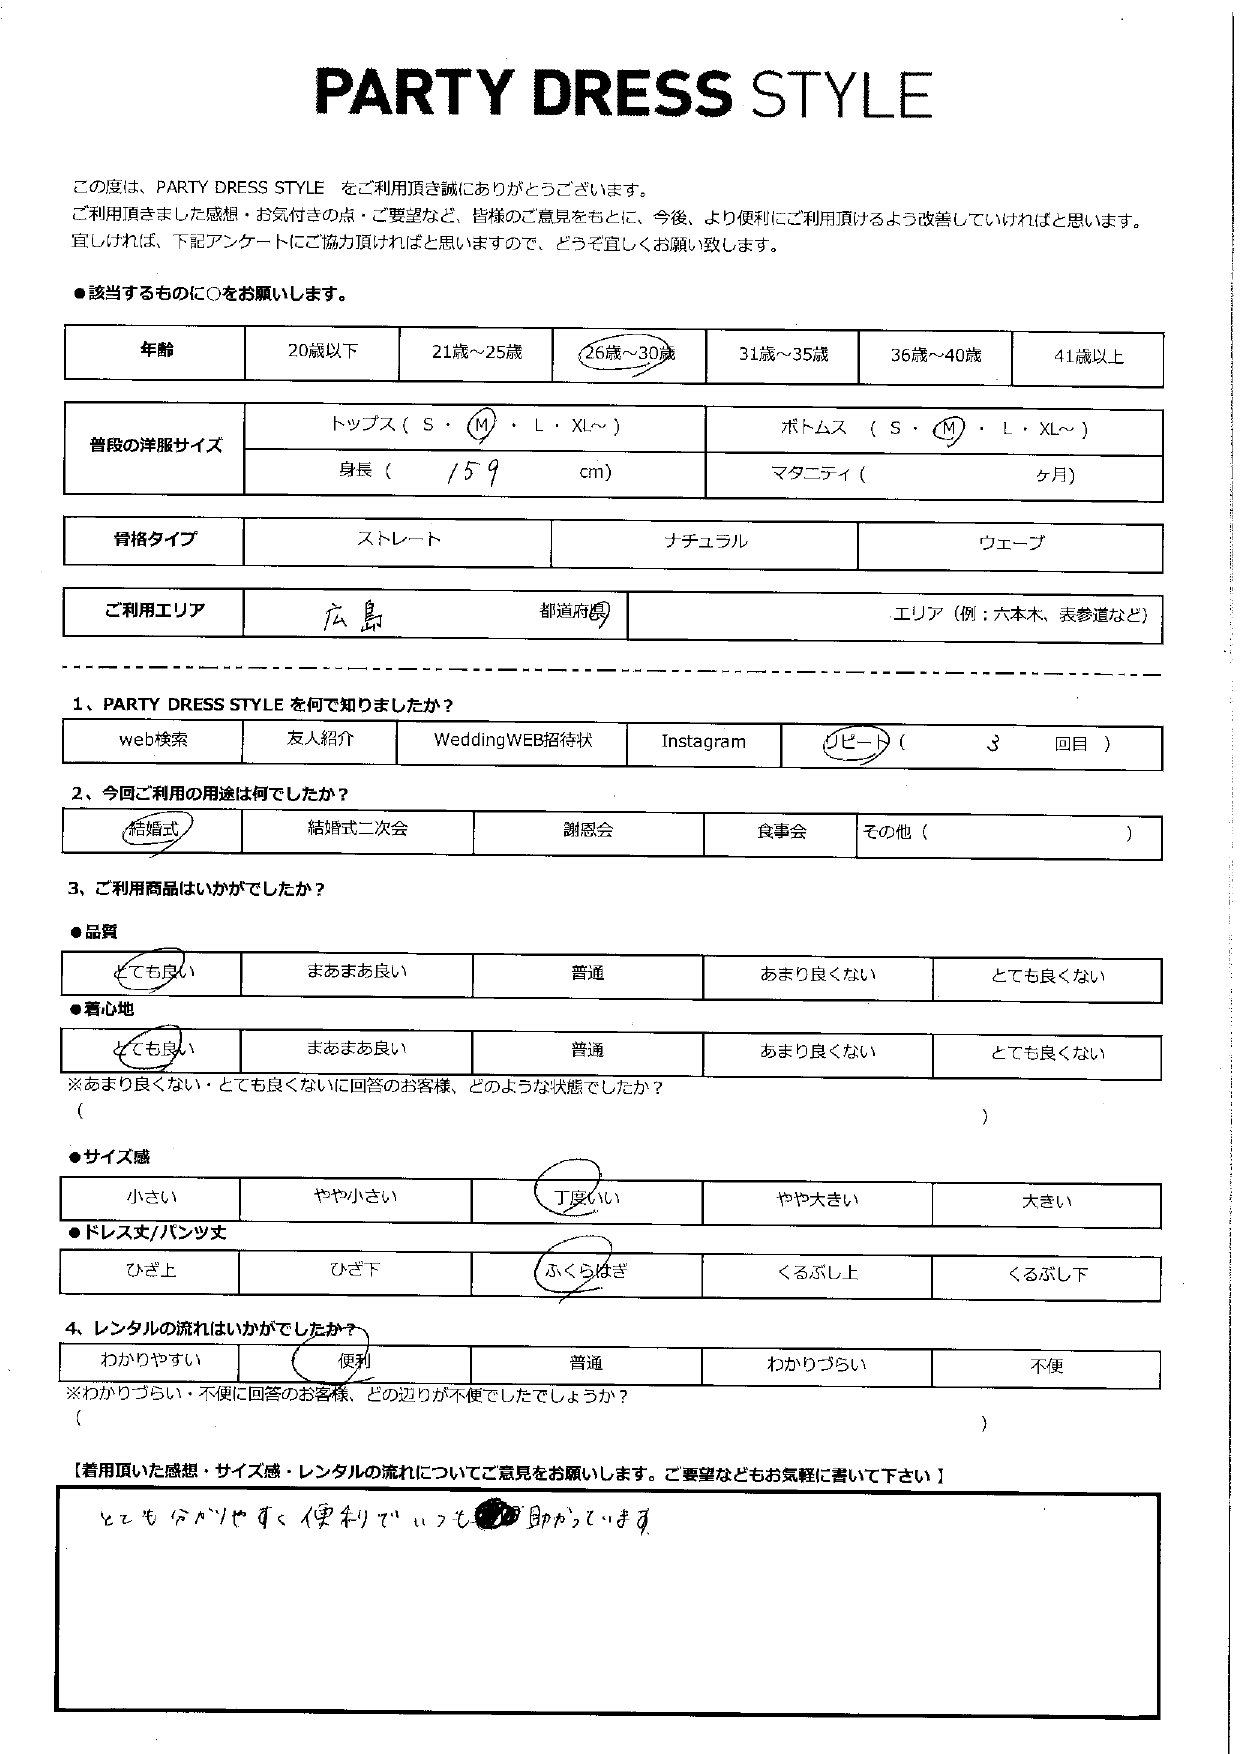 PARTY DRESS STYLE
この度は、PARTY DRESS STYLE　をご利用頂き誠にありがとうございます。
ご利用頂きました感想・お気付きの点・ご要望など、皆様のご意見をもとに、今後、より便利にご利用頂けるよう改善していければと思います。
宜しければ、下記アンケートにご協力頂ければと思いますので、どうぞ宜しくお願い致します。
●該当するものに○をお願いします。
年齢 20歳以下 21歳～25歳 26歳～30歳 31歳～35歳 36歳～40歳 41歳以上
普段の洋服サイズ
トップス ( S ・ M ・ L ・ XL～ ) ボトムス ( S ・ M ・ L ・ XL～ )
身長 ( 159 cm) マタニティ ( ヶ月)
骨格タイプ ストレート ナチュラル ウェーブ
ご利用エリア 広島 都道府県 エリア（例：六本木、表参道など）
1、PARTY DRESS STYLE を何で知りましたか？
web検索 友人紹介 WeddingWEB招待状 Instagram リピート ( 3 回目 )
2、今回ご利用の用途は何でしたか？
結婚式 結婚式二次会 謝恩会 食事会 その他 ( )
3、ご利用商品はいかがでしたか？
●品質
とても良い まあまあ良い 普通 あまり良くない とても良くない
●着心地
とても良い まあまあ良い 普通 あまり良くない とても良くない
※あまり良くない・とても良くないに回答のお客様、どのような状態でしたか？
( )
●サイズ感
小さい やや小さい 丁度いい やや大きい 大きい
●ドレス丈/パンツ丈
ひざ上 ひざ下 ふくらはぎ くるぶし上 くるぶし下
4、レンタルの流れはいかがでしたか？
わかりやすい 便利 普通 わかりづらい 不便
※わかりづらい・不便に回答のお客様、どの辺りが不便でしたでしょうか？
( )
【着用頂いた感想・サイズ感・レンタルの流れについてご意見をお願いします。ご要望などもお気軽に書いて下さい】
とても分かりやすく便利でいつも助かっています